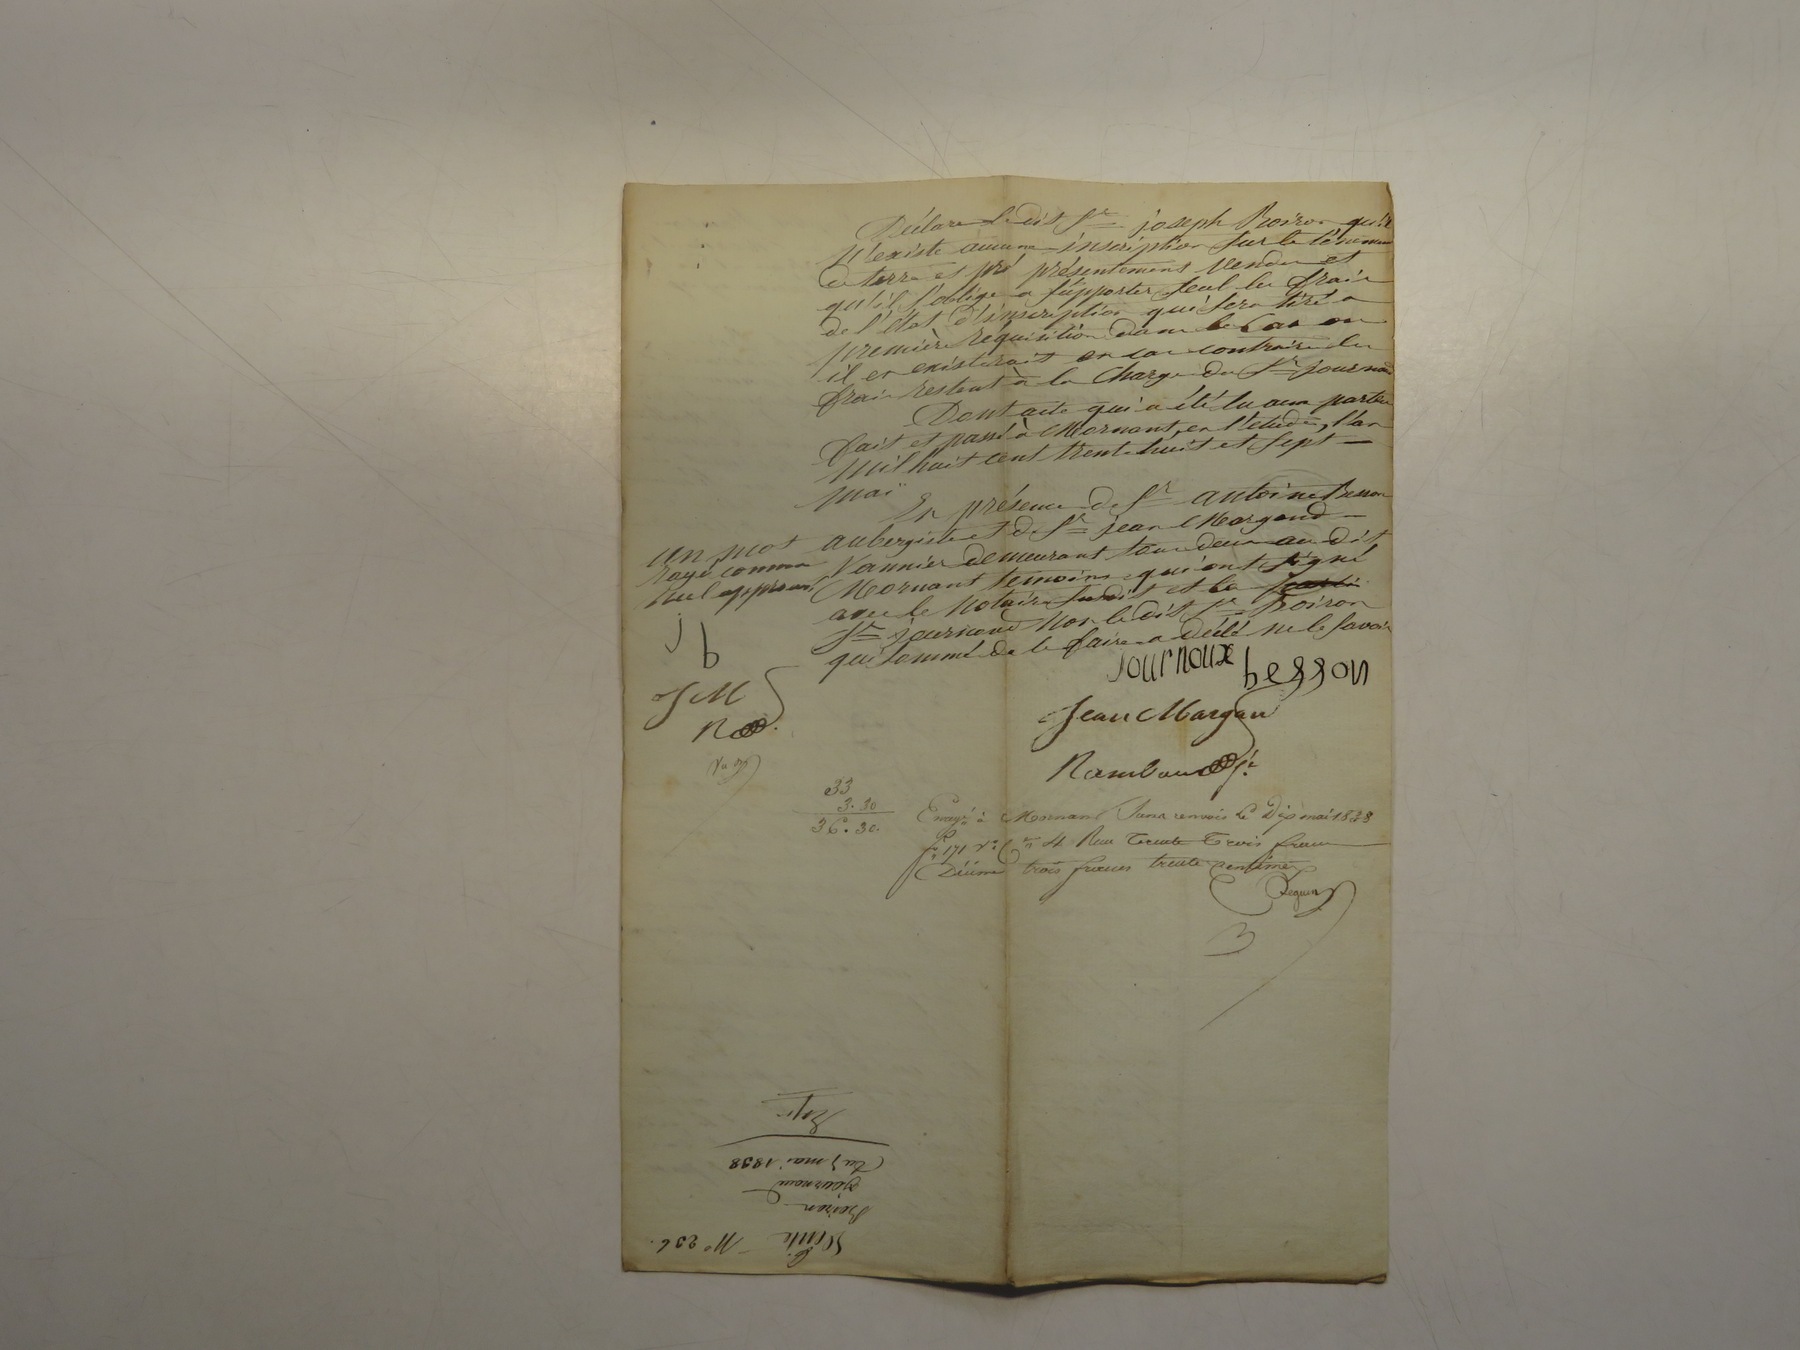 Déclare le dit Sr joseph Boiron qu'il
n'existe aucune inscription sur le ténement
de terre et pré présentement vendu et
qu'il s'oblige a supporter seul les frais
de l'état d'inscription qui sera tiré a
première réquisition dans le cas ou
il en existerait en cas contraire les
frais restent à la charge du Sr journoud
Dont acte qui a été lu aux parties
fait et passé à Mornant, en l'étude, l'an
mil huit cent trente huit et sept
mai
En présence de Sr antoine Besson
aubergiste et de Sr jean Margand
vannier demeurant tous deux au dit
Mornant témoins qui ont signé
avec le Notaire susdit et le
Sr journoud non le dit Sr Boiron
qui sommé de le faire a déclé ne le savoir
un mot
rayé comme
nul approuvé
j b
JM
R
journoux besson
Jean Margan
Rambaud
33
3.30
36.30
Enregé à Mornant sans renvois le Dix mai 1838
fo 171 Vo Cse 4 Reçu trente trois francs
Décime trois francs trente centimes
Vente No 236.
Boiron
Journoud
Du 7 mai 1838